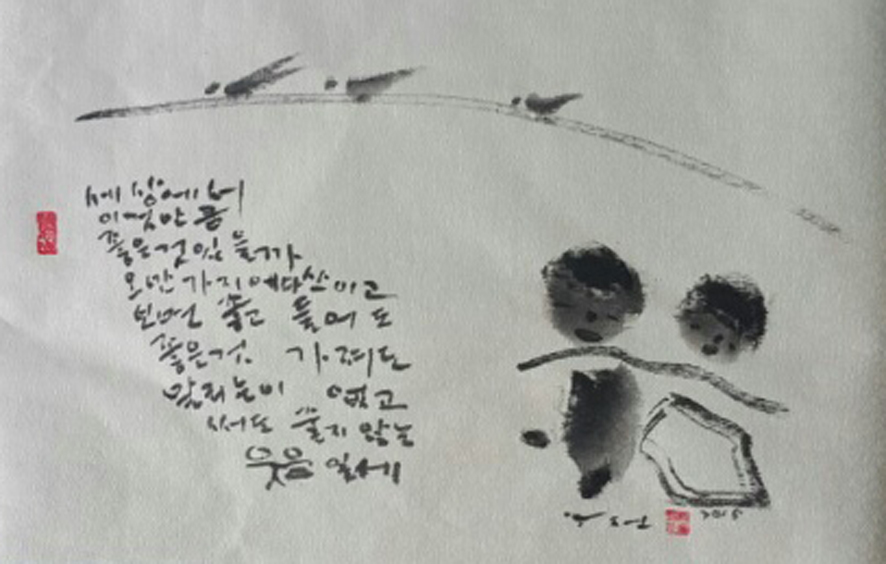 세상에서
이것만큼
좋은것있을까
오만가지
보면 좋고 들어도
좋은것 가져도
없고
써도 줄지 않는
웃음일세
2015